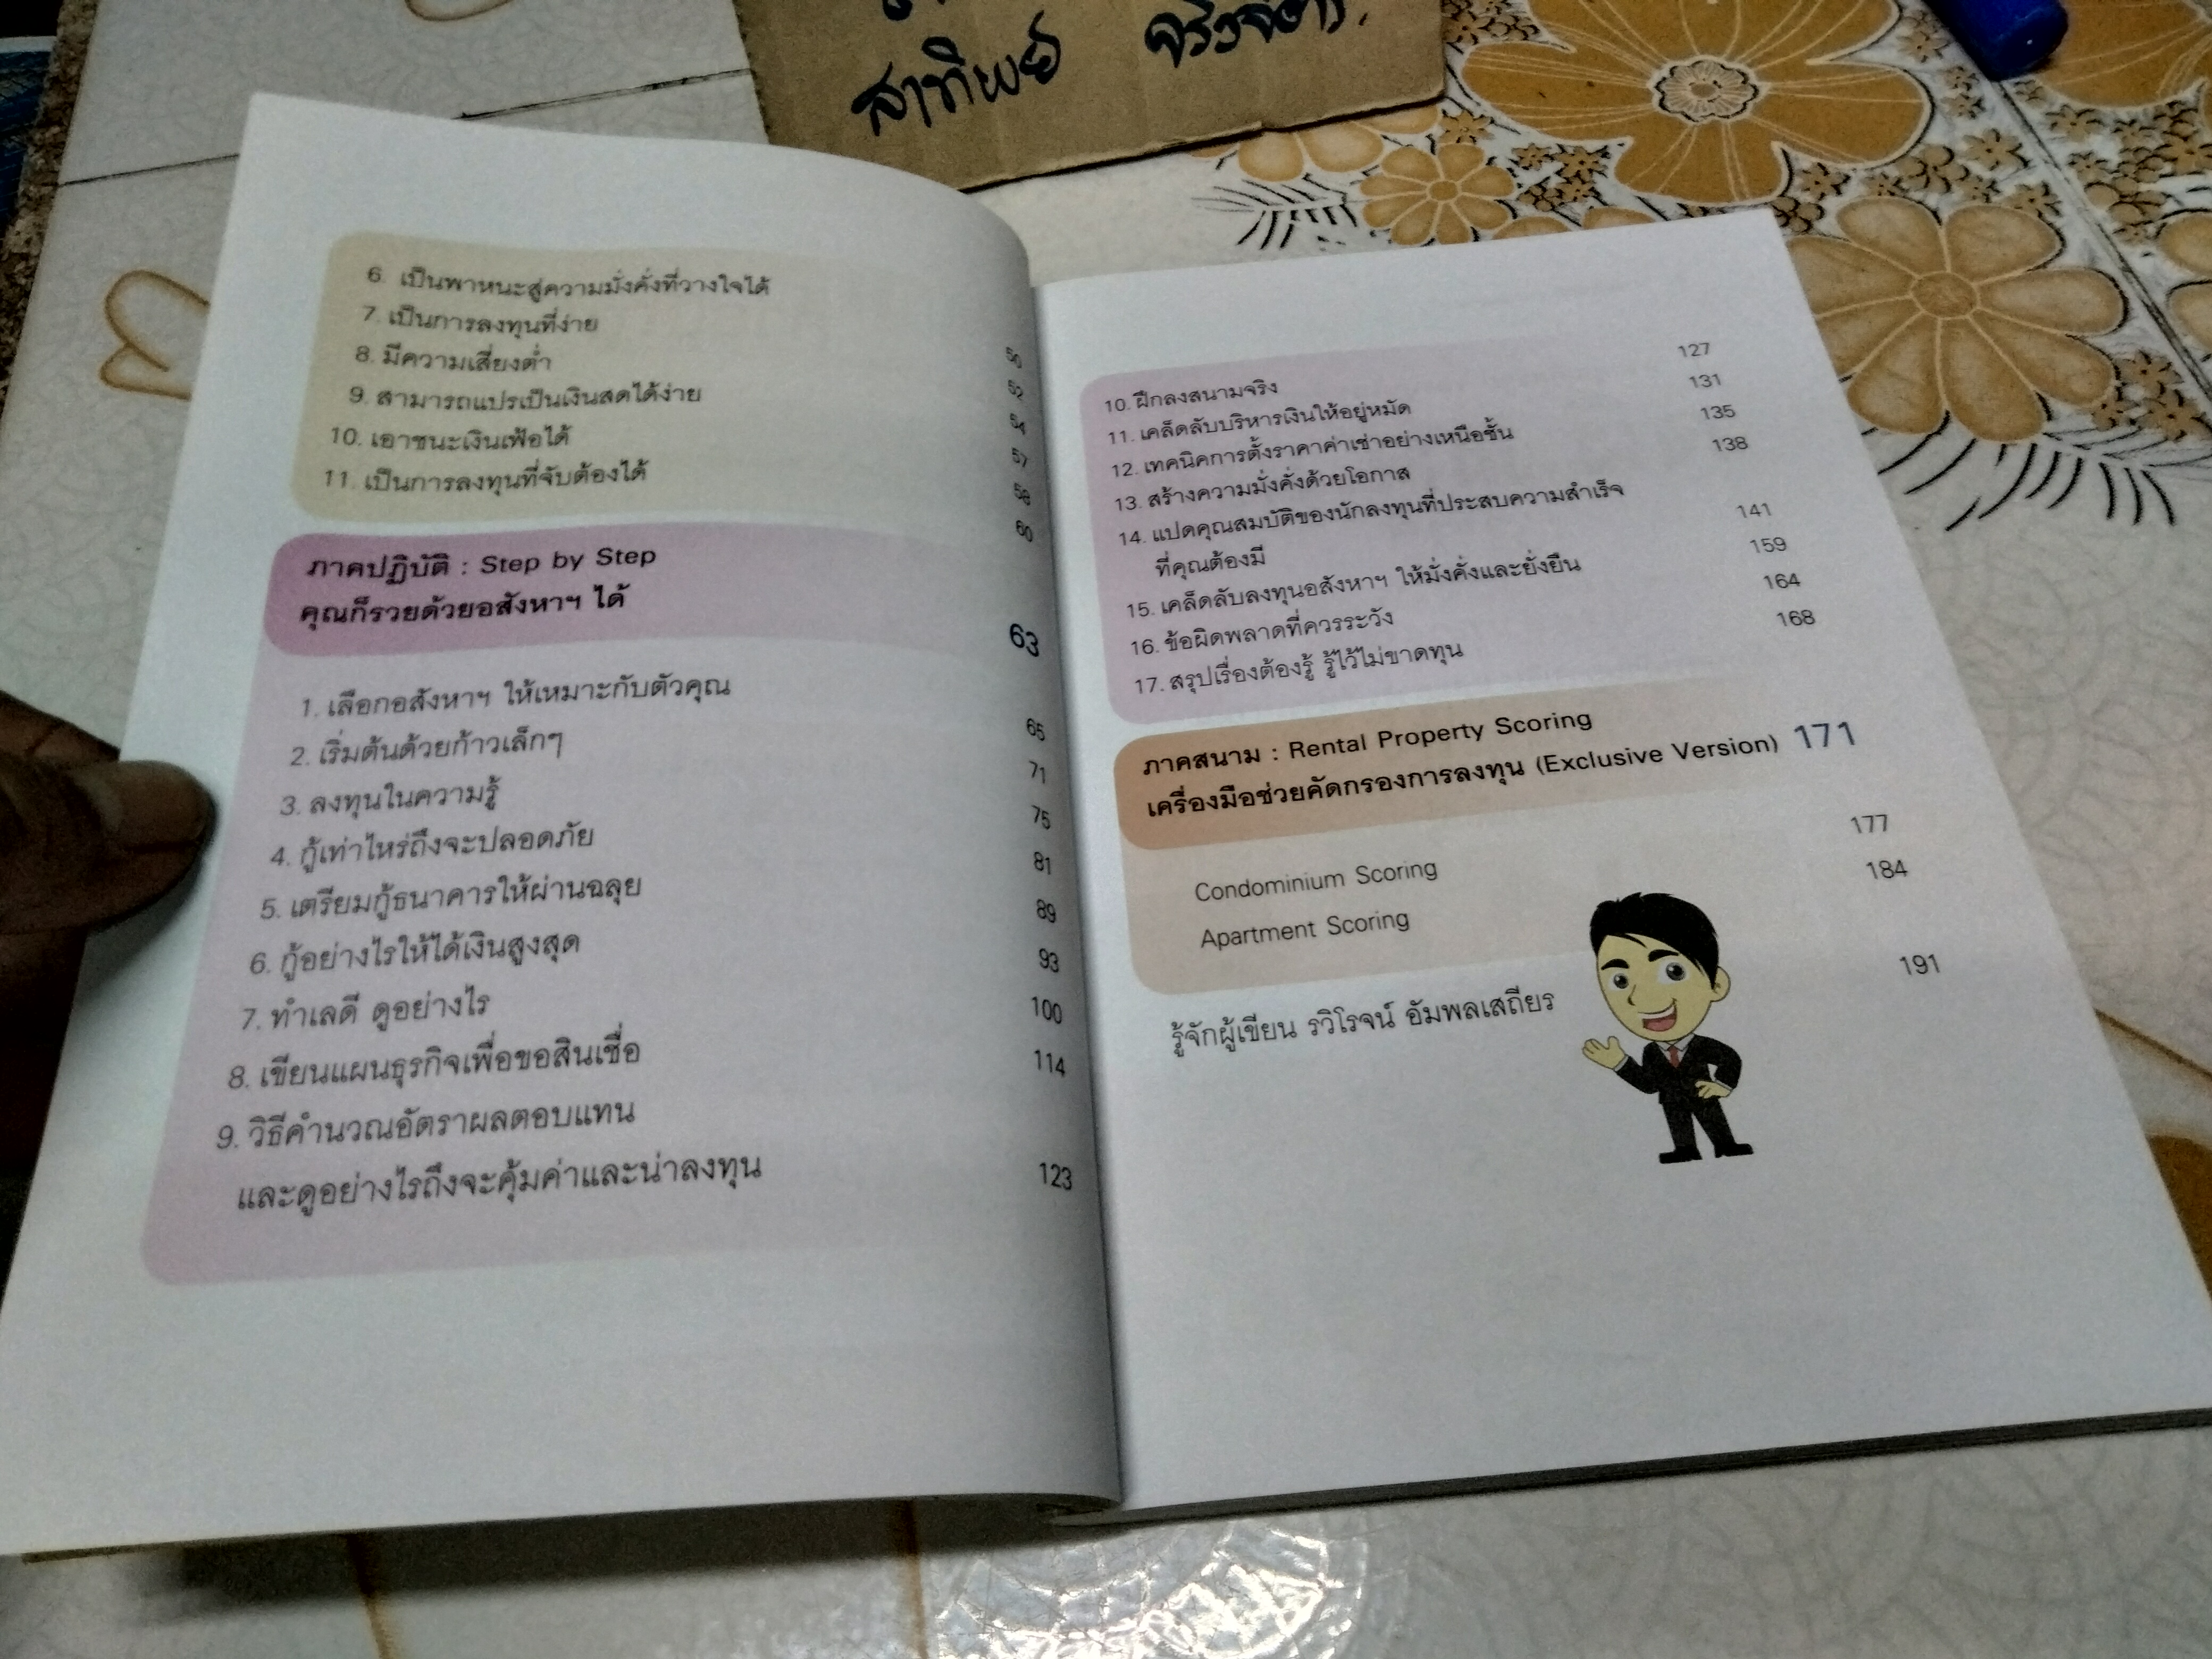 สาทิพย์
6. เป็นพาหนะสู่ความมั่งคั่งที่วางใจได้ 50
7. เป็นการลงทุนที่ง่าย 52
8. มีความเสี่ยงต่ำ 54
9. สามารถแปรเป็นเงินสดได้ง่าย 57
10. เอาชนะเงินเฟ้อได้ 58
11. เป็นการลงทุนที่จับต้องได้ 60
ภาคปฏิบัติ : Step by Step
คุณก็รวยด้วยอสังหาฯ ได้ 63
1. เลือกอสังหาฯ ให้เหมาะกับตัวคุณ 65
2. เริ่มต้นด้วยก้าวเล็กๆ 71
3. ลงทุนในความรู้ 75
4. กู้เท่าไหร่ถึงจะปลอดภัย 81
5. เตรียมกู้ธนาคารให้ผ่านฉลุย 89
6. กู้อย่างไรให้ได้เงินสูงสุด 93
7. ทำเลดี ดูอย่างไร 100
8. เขียนแผนธุรกิจเพื่อขอสินเชื่อ 114
9. วิธีคำนวณอัตราผลตอบแทน
และดูอย่างไรถึงจะคุ้มค่าและน่าลงทุน 123
10. ฝึกลงสนามจริง 127
11. เคล็ดลับบริหารเงินให้อยู่หมัด 131
12. เทคนิคการตั้งราคาค่าเช่าอย่างเหนือชั้น 135
13. สร้างความมั่งคั่งด้วยโอกาส 138
14. แปดคุณสมบัติของนักลงทุนที่ประสบความสำเร็จ
ที่คุณต้องมี 141
15. เคล็ดลับลงทุนอสังหาฯ ให้มั่งคั่งและยั่งยืน 159
16. ข้อผิดพลาดที่ควรระวัง 164
17. สรุปเรื่องต้องรู้ รู้ไว้ไม่ขาดทุน 168
ภาคสนาม : Rental Property Scoring
เครื่องมือช่วยคัดกรองการลงทุน (Exclusive Version) 171
Condominium Scoring 177
Apartment Scoring 184
รู้จักผู้เขียน รวิโรจน์ อัมพลเสถียร 191